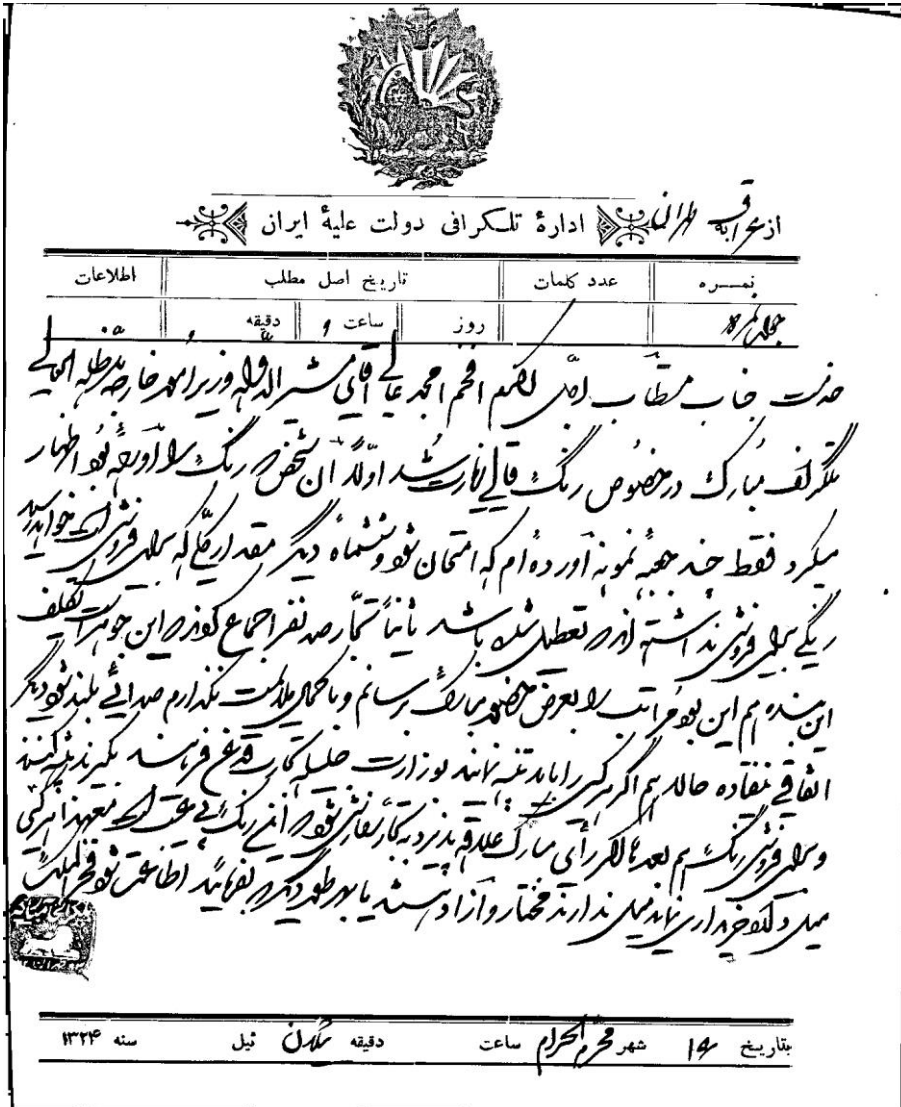 از عراق به طهران
ادارهٔ تلگرافی دولت علیهٔ ایران
نمره عدد کلمات تاریخ اصل مطلب اطلاعات
روز ساعت دقیقه
خدمت جناب مستطاب اجل اکرم افخم امجد عالی آقای مشیرالدوله وزیر امور خارجه مدظله العالی
تلگراف مبارک در خصوص رنگ قالی زیارت شد اولاً آن شخص که رنگ را آورده بود اظهار
میکرد فقط چند جعبه نمونه آورده‌ام که امتحان شود و ششماه دیگر مقدار کلی که برای فروش است خواهد رسید
رنگی برای فروش نداشته‌اند که تعطیل شده باشد ثانیاً تجار صد نفر اجماع کردند که این جوهر است تکلیف
این بنده هم این بود مراتب را بعرض حضور مبارک برسانم و با کمال ملایمت نگذارم صدائی بلند شود دیگر
اتفاقی نیفتاده حالا هم اگر هرکس را باید تنبیه نمایند بوزارت جلیله تجارت قدغن فرمایند بگیرند تنبیه کنند
و برای فروش رنگ هم بعدها اگر رأی مبارک علاقه پذیرد به تجار سفارش شود که رنگ بی عیب است معهذا هرکس
میل دارد خریداری نماید میل ندارند مختار و آزاد هستند یا بهر طور دیگر که بفرمایند اطاعت شود فخرالملک
بتاریخ ۱۴ شهر محرم الحرام ساعت دقیقه ئیل سنه ۱۳۲۴